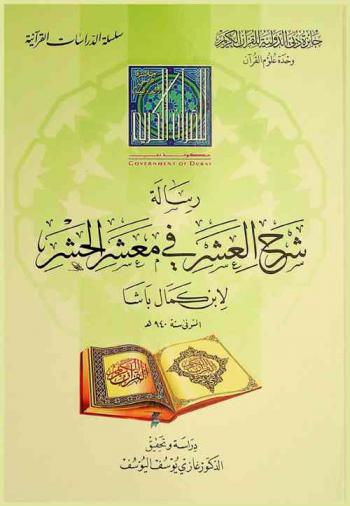 جائزة دبي الدولية للقرآن الكريم
وحدة علوم القرآن
سلسلة الدراسات القرآنية
GOVERNMENT OF DUBAI
رسالة
شرح العشر في معشر الحشر
لابن كمال باشا
المتوفى سنة ٩٤٠هـ
دراسة وتحقيق
الدكتور غازي يوسف اليوسف